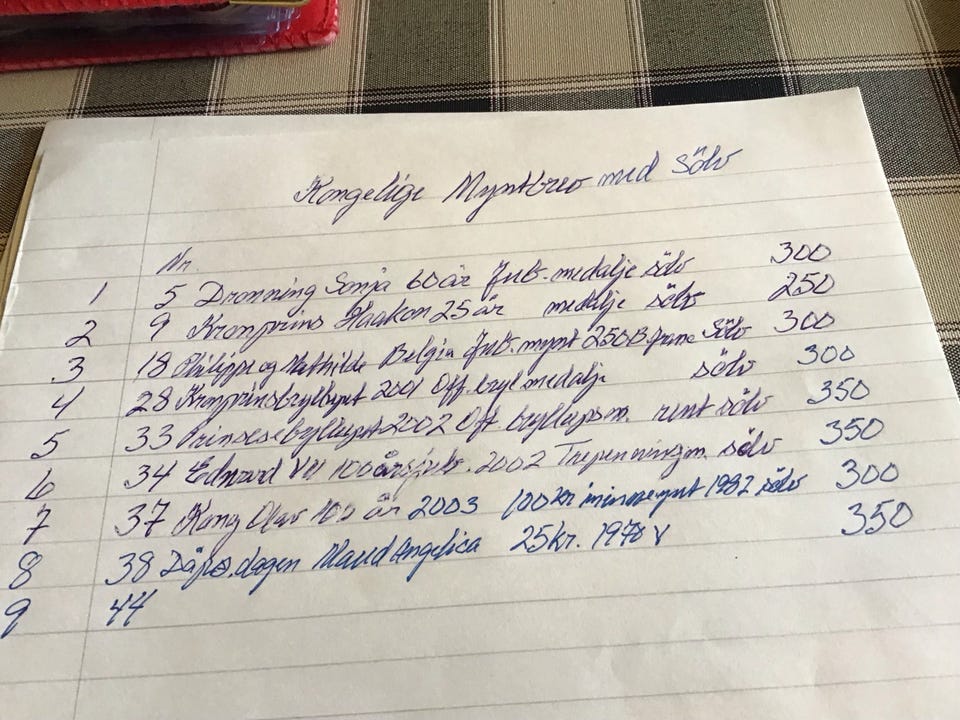 Kongelige Myntbrev med Sölv
Nr.
1 5 Dronning Sonja 60 år Jub. medalje sölv 300
2 9 Kronprins Haakon 25 år medalje sölv 250
3 18 Philippe og Mathilde Belgia Jub. mynt 250 B. franc Sölv 300
4 28 Kronprinsbryllupet 2001 Off. bryl medalje sölv 300
5 33 Prinsesebryllupet 2002 Off bryllupsm. rent sölv 350
6 34 Edward VII 100 årsjub. 2002 Trepenningm. sölv 350
7 37 Kong Olav 100 år 2003 100 kr minnemynt 1982 sölv 300
8 38 Dåps.dagen Maud Angelica 25 kr. 1978 350
9 44